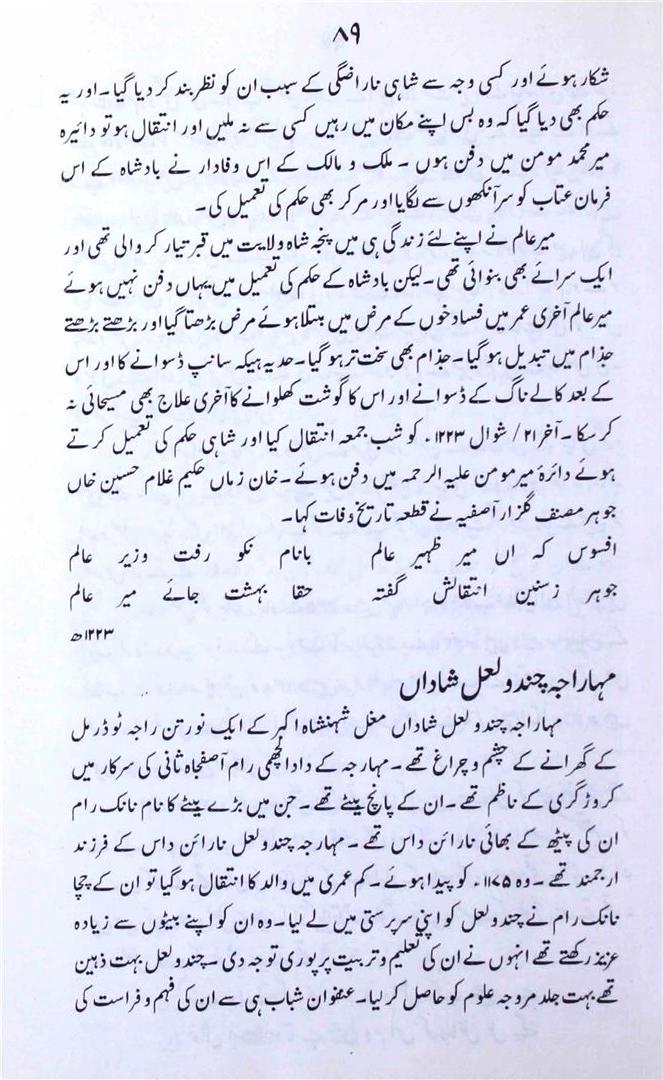 ۸۹
شکار ہوئے اور کسی وجہ سے شاہی ناراضگی کے سبب ان کو نظر بند کر دیا گیا۔ اور یہ
حکم بھی دیا گیا کہ وہ بس اپنے مکان میں رہیں کسی سے نہ ملیں اور انتقال ہو تو دائیرہ
میر محمد مومن میں دفن ہوں ۔ ملک و مالک کے اس وفادار نے بادشاہ کے اس
فرمان عتاب کو سر آنکھوں سے لگایا اور مر کر بھی حکم کی تعمیل کی۔
میر عالم نے اپنے لئے زندگی ہی میں پنجہ شاہ ولایت میں قبر تیار کروالی تھی اور
ایک سرائے بھی بنوائی تھی۔ لیکن بادشاہ کے حکم کی تعمیل میں یہاں دفن نہیں ہوئے
میر عالم آخری عمر میں فساد خوں کے مرض میں مبتلا ہوئے مرض بڑھتا گیا اور بڑھتے بڑھتے
جذام میں تبدیل ہو گیا۔ جذام بھی سخت تر ہو گیا۔ حد یہ ہیکہ سانپ ڈسوانے کا اور اس
کے بعد کالے ناگ کے ڈسوانے اور اس کا گوشت کھلوانے کا آخری علاج بھی مسیحائی نہ
کر سکا۔ آخر ۲۱ / شوال ۱۲۲۳ء کو شب جمعہ انتقال کیا اور شاہی حکم کی تعمیل کرتے
ہوئے دائرہ میر مومن علیہ الرحمہ میں دفن ہوئے۔ خان زماں حکیم غلام حسین خاں
جوہر مصنف گلزار آصفیہ نے قطعہ تاریخ وفات کہا۔
افسوس کہ اں میر ظہیر عالم بانام نکو رفت وزیر عالم
جوہر زسنین انتقالش گفتہ حقا بہشت جائے میر عالم
۱۲۲۳ھ
مہاراجہ چندولعل شاداں
مہاراجہ چندولعل شاداں مغل شہنشاہ اکبر کے ایک نورتن راجہ ٹوڈرمل
کے گھرانے کے چشم و چراغ تھے۔ مہارجہ کے دادا لچھی رام آصفجاہ ثانی کی سرکار میں
کروڑگری کے ناظم تھے۔ ان کے پانچ بیٹے تھے۔ جن میں بڑے بیٹے کا نام نانک رام
ان کی پیٹھ کے بھائی نارائن داس تھے۔ مہارجہ چندولعل نارائن داس کے فرزند
ارجمند تھے۔ وہ ۱۱۷۵ء کو پیدا ہوئے۔ کم عمری میں والد کا انتقال ہو گیا تو ان کے چچا
نانک رام نے چندولعل کو اپنی سرپرستی میں لے لیا۔ وہ ان کو اپنے بیٹوں سے زیادہ
عزیز رکھتے تھے انہوں نے ان کی تعلیم و تربیت پر پوری توجہ دی۔ چندولعل بہت ذہین
تھے بہت جلد مروجہ علوم کو حاصل کر لیا۔ عنفوان شباب ہی سے ان کی فہم و فراست کی